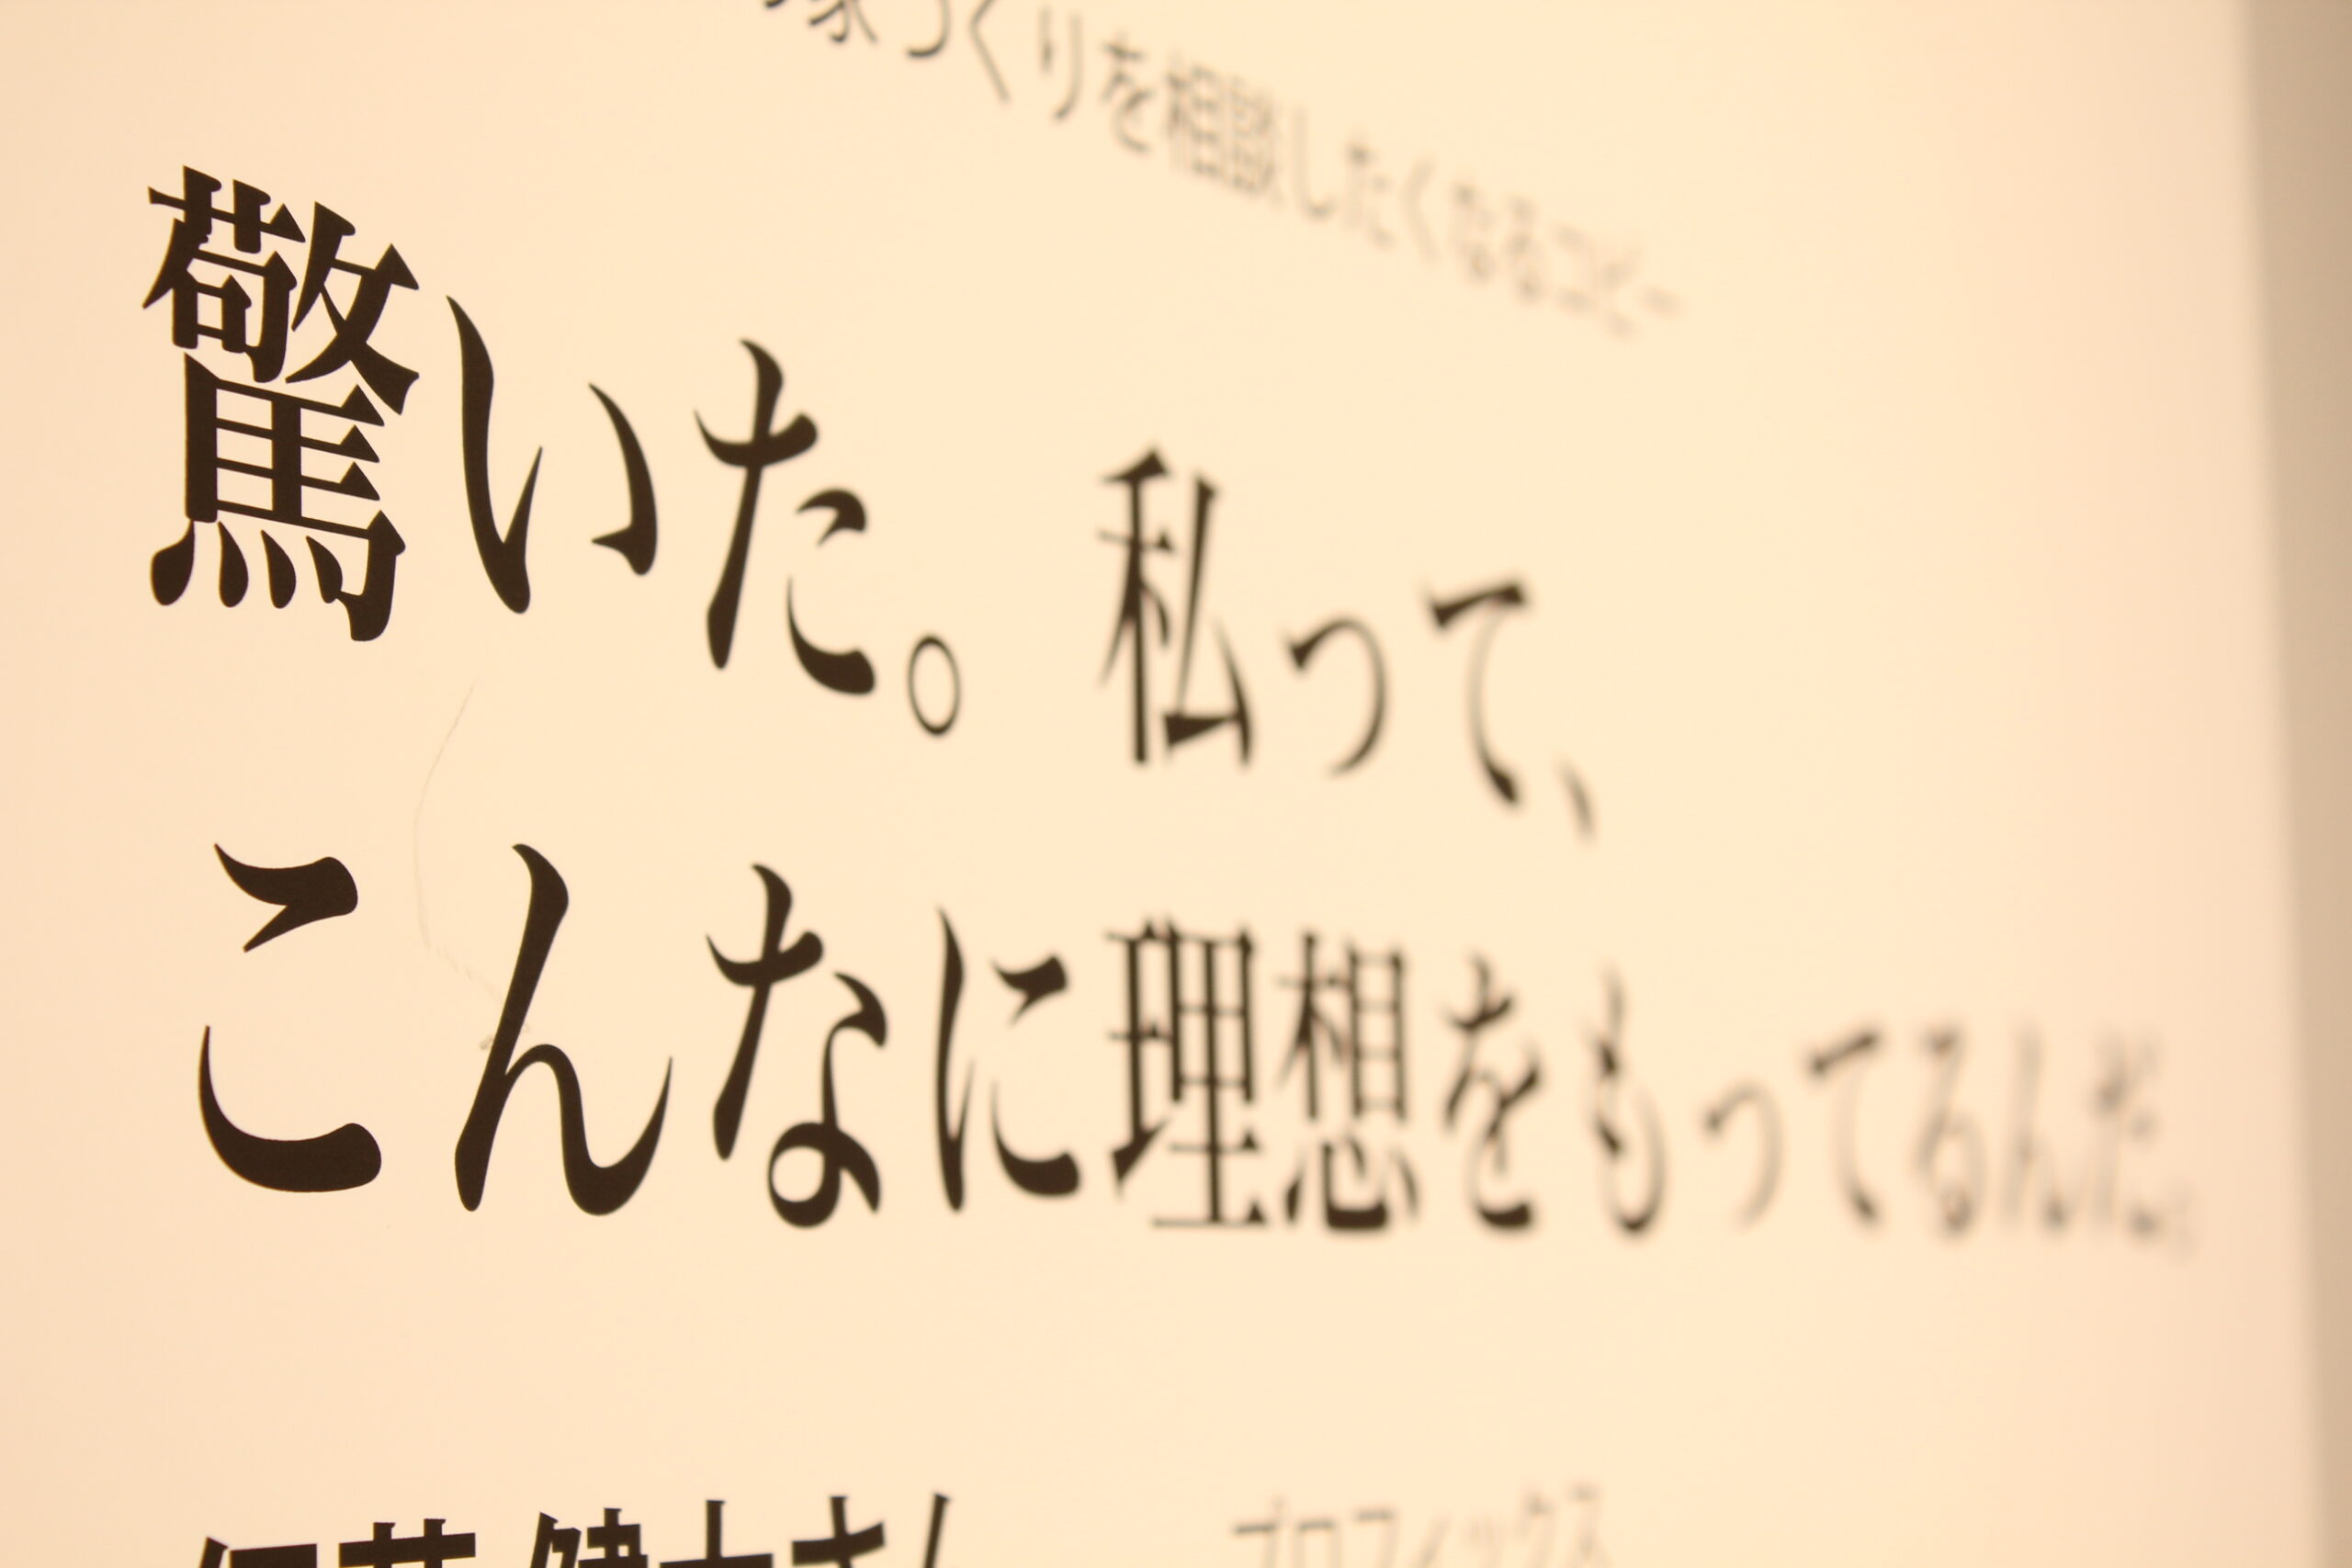 づくりを相談したくなるコピー
驚いた。私って、
こんなに理想をもってるんだ。
プロフィックス